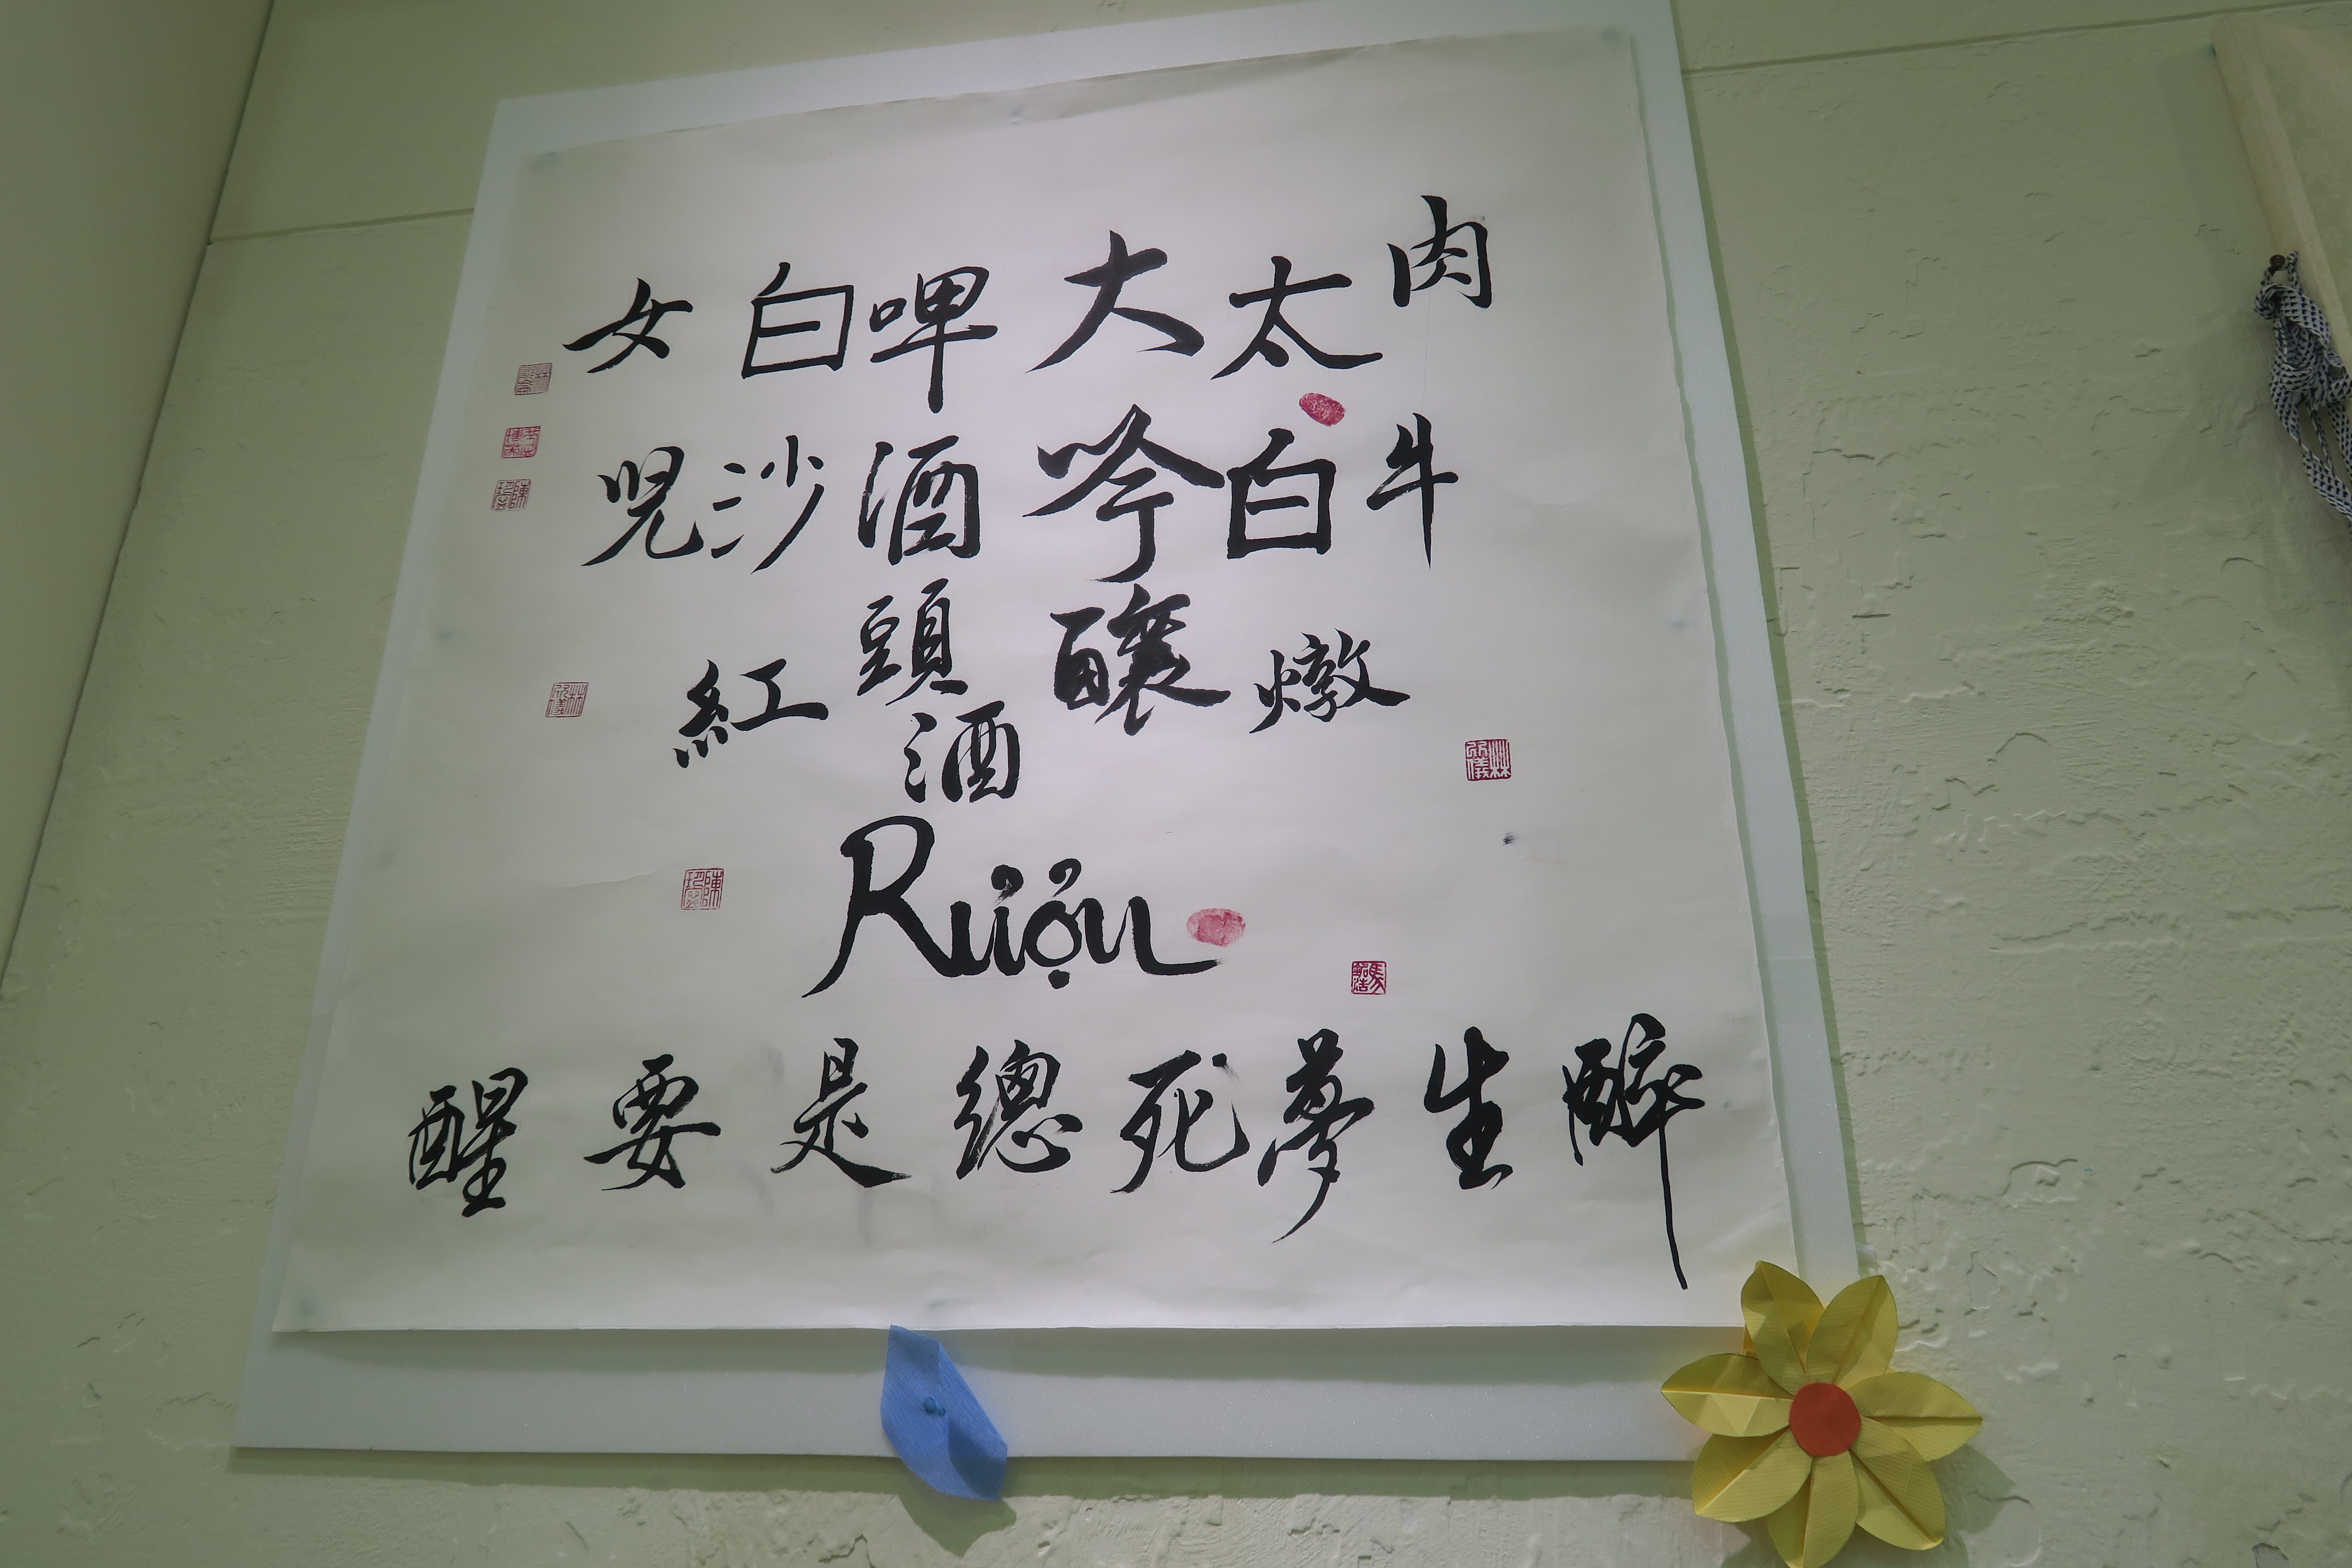 肉牛燉
太白
大吟釀
啤酒頭酒
白沙
女兒紅
Rượu
醉生夢死總是要醒